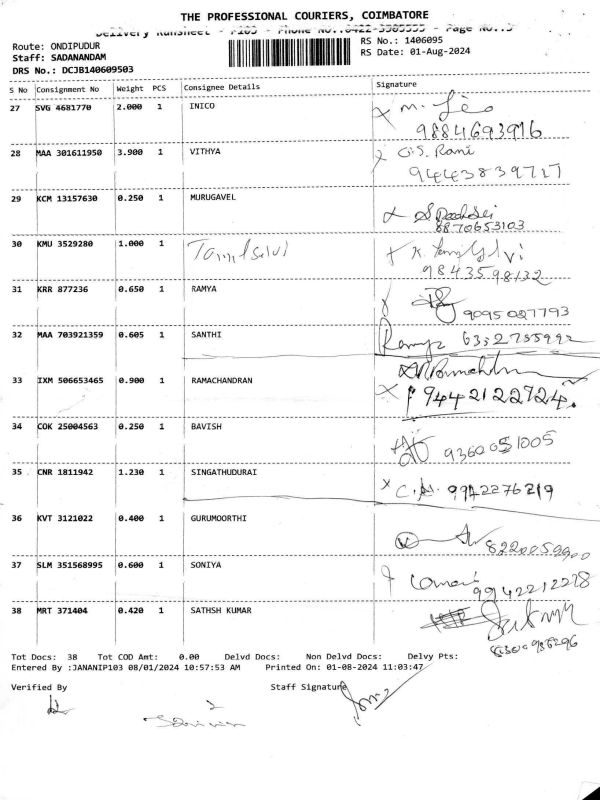 THE PROFESSIONAL COURIERS, COIMBATORE
Delivery Runsheet - P103 - Phone No.:0422-3505555 - Page No.:3
Route: ONDIPUDUR RS No.: 1406095
Staff: SADANANDAM RS Date: 01-Aug-2024
DRS No.: DCJB140609503
S No Consignment No Weight PCS Consignee Details Signature
27 SVG 4681770 2.000 1 INICO
9884693916
28 MAA 301611950 3.900 1 VITHYA G.S. Rani
9443839717
29 KCM 13157630 0.250 1 MURUGAVEL
8870653103
30 KMU 3529280 1.000 1 Tamilselvi K. Tamilselvi
9843598132
31 KRR 877236 0.650 1 RAMYA
9095027793
32 MAA 703921359 0.605 1 SANTHI Ramya 6352755992
33 IXM 506653465 0.900 1 RAMACHANDRAN
9442122724
34 COK 25004563 0.250 1 BAVISH
9360051005
35 CNR 1811942 1.230 1 SINGATHUDURAI 9942276219
36 KVT 3121022 0.400 1 GURUMOORTHI
8220059900
37 SLM 351568995 0.600 1 SONIYA
9942212278
38 MRT 371404 0.420 1 SATHSH KUMAR
Tot Docs: 38 Tot COD Amt: 0.00 Delvd Docs: Non Delvd Docs: Delvy Pts:
Entered By :JANANIP103 08/01/2024 10:57:53 AM Printed On: 01-08-2024 11:03:47
Verified By Staff Signature